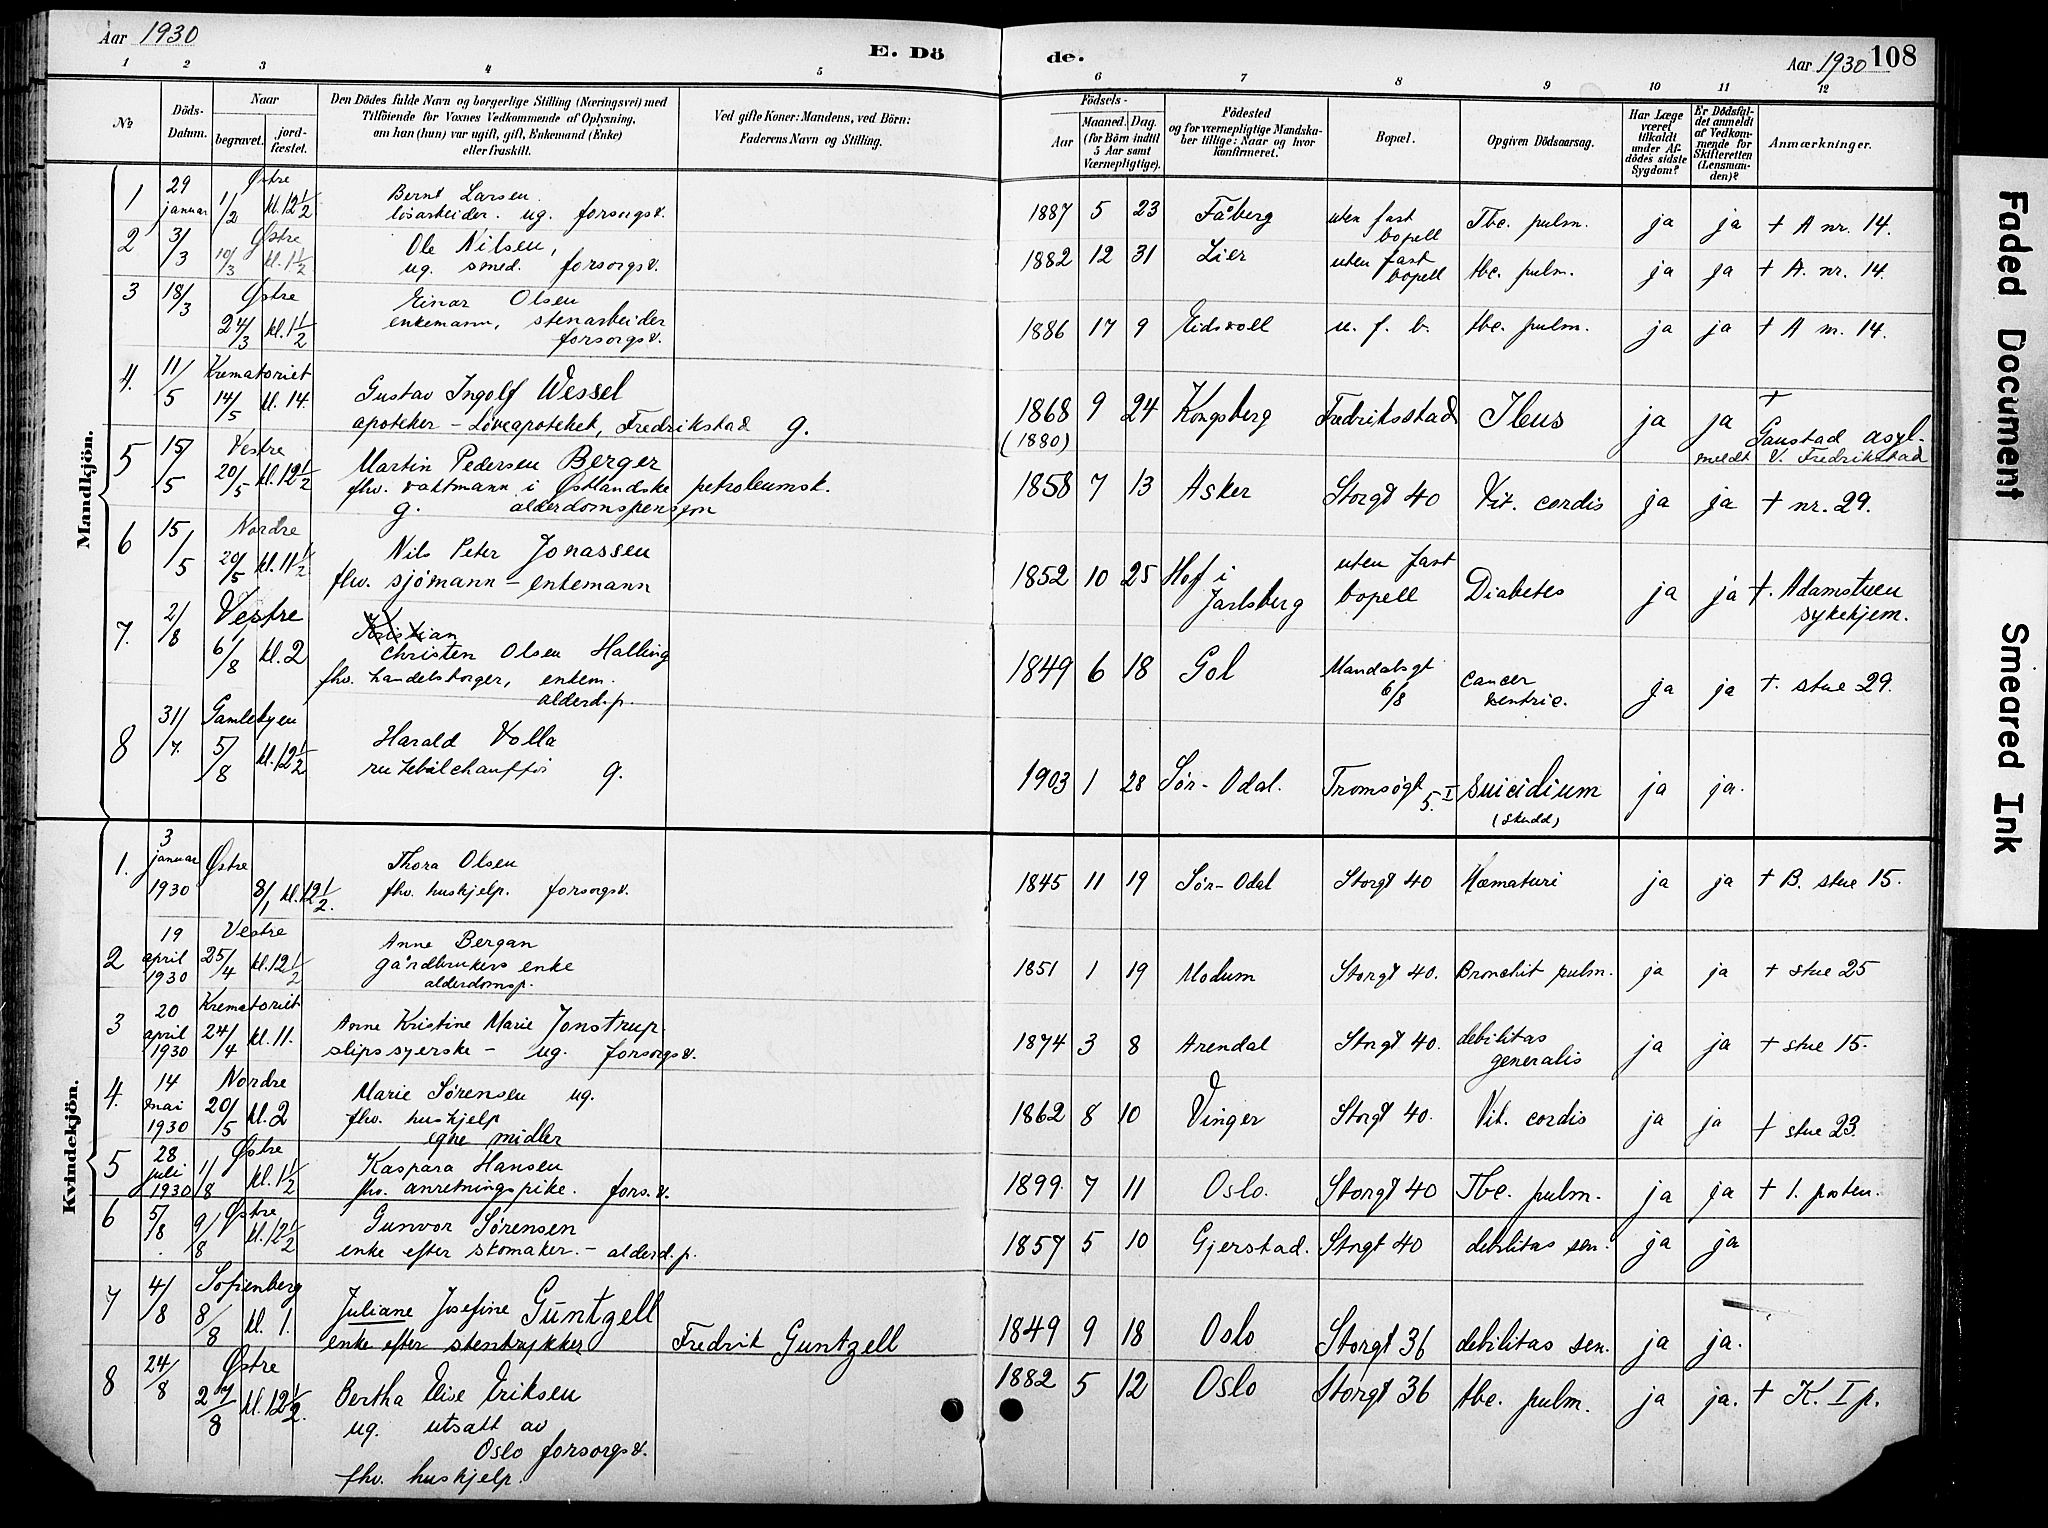 Aar 1930
E. Dö de.
Aar 1930 108
1 2 3 4 5 6 7 8 9 10 11 12
№
Döds-Datum.
Naar
begravet.
jord-fæstet.
Den Dödes fulde Navn og borgerlige Stilling (Næringsvei) med
Tilföiende for Voxnes Vedkommende af Oplysning,
om han (hun) var ugift, gift, Enkemand (Enke)
eller fraskilt.
Ved gifte Koner: Mandens, ved Börn:
Faderens Navn og Stilling.
Födsels-
Aar
Maaned. Dag.
(for Börn indtil
5 Aar samt
Værnepligtige).
Födested
og for værnepligtige Mandska-
ber tillige: Naar og hvor
konfirmeret.
Bopæl.
Opgiven Dödsaarsag.
Har Læge
været
tilkaldt
under Af-
dödes sidste
Sygdom?
Er Dödsfal-
det anmeldt
af Vedkom-
mende for
Skifteretten
(Lensman-
den)?
Anmærkninger.
Mandkjön.
1 29 januar Østre 1/2 kl. 12 1/2
Bernt Larsen
løsarbeider. ug. forsorgsv.
1887 5 23 Fåberg uten fast bopell Tbc. pulm. ja ja + A nr. 14.
2 3/3 Østre 10/3 kl. 1 1/2
Ole Nilsen,
ug. smed. forsorgsv.
1882 12 31 Lier uten fast bopell tbc. pulm. ja ja + A. nr. 14.
3 18/3 Østre 24/3 kl. 1 1/2
Einar Olsen
enkemann, stenarbeider
forsorgsv.
1886 17 9 Eidsvoll u. f. b. tbc. pulm. ja ja + A nr. 14.
4. 11/5 Krematoriet 14/5 kl. 14.
Gustav Ingolf Wessel
apoteker - Løveapoteket, Fredrikstad g.
1868 (1880) 9 24 Kongsberg Fredriksstad Ileus ja ja meldt + Gaustad asyl. v. Fredrikstad
5 15/5 Vestre 20/5 kl. 12 1/2
Martin Pedersen Berger
fhv. vaktmann i Østlandske petroleumsk.
g. alderdomspensjon
1858 7 13 Asker Storgt 40 Vit. cordis ja ja + nr. 29.
6 15/5 Nordre 20/5 kl. 11 1/2
Nils Peter Jonassen
fhv. sjømann - enkemann
1852 10 25 Hof i Jarlsberg uten fast bopell Diabetes ja ja +. Adamstuen sykehjem.
7. 2/8 Vestre 6/8 kl. 2
Kristian
Christen Olsen Halling
fhv. handelsborger, enkem.
alderd.p.
1849 6 18 Gol Mandalsgt 6/8 cancer ventric. ja ja +. stue 29.
8 31/7. Gamlebyen 5/8 kl. 12 1/2
Harald Volla
rutebilchauffør g.
1903 1 28 Sør-Odal. Tromsøgt 5. I suicidium (skudd) ja ja.
Kvindekjön.
1. 3 januar 1930 Østre 8/1 kl. 12 1/2.
Thora Olsen
fhv. hushjelp. forsorgsv.
1845 11 19 Sør-Odal Storgt 40 Hæmaturi ja ja + B. stue 15.
2 19 april 1930 Vestre 25/4 kl. 12 1/2
Anne Bergan
gårdbrukers enke
alderdomsp.
1851 1 19 Modum Storgt 40. Bronchit pulm. ja ja + stue 25
3 20 april 1930 Krematoriet 24/4 kl. 11.
Anne Kristine Marie Jonstrup
slipssyerske - ug. forsorgsv.
1874 3 8 Arendal Storgt 40. debilitas generalis ja ja + stue 15.
4. 14 mai 1930 Nordre 20/5 kl. 2
Marie Sørensen ug.
fhv. hushjelp
egne midler
1862 8 10 Vinger Storgt 40. Vit. cordis ja ja + stue 23.
5 28 juli 1930 Østre 1/8 kl. 1 1/2
Kaspara Hansen
fhv. anretningspike. fors.v.
1899. 7 11 Oslo. Storgt 40 Tbc. pulm. ja ja + 1. posten.
6 5/8. Østre 9/8 kl. 12 1/2
Gunvor Sørensen
enke efter skomaker. - alderd.p.
1857 5 10 Gjerstad. Storgt 40 debilitas sen. ja ja
7 4/8 Sofienberg 8/8 kl. 1.
Juliane Josefine Güntzell
enke efter stentrykker Fredrik Guntzell
1849 9 18 Oslo Storgt 36 debilitas sen. ja ja.
8 24/8 Østre 27/8 kl. 12 1/2.
Bertha Elise Eriksen
ug. utsatt av
Oslo forsorgsv.
fhv. hushjelp.
1882 5 12 Oslo Storgt 36 tbc. pulm. ja ja. + K. I p.
Faded Document
Smeared Ink